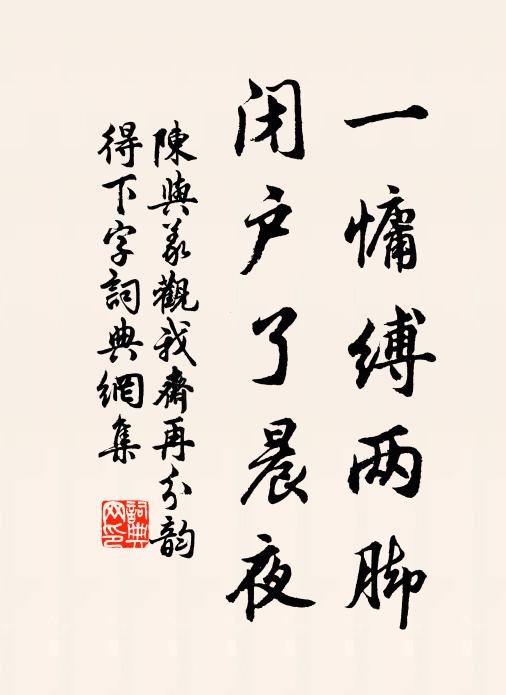 一慵缚两脚
闭户了晨夜
陳與義觀我齋再分韵
得下字詞典網集
詞典
网印